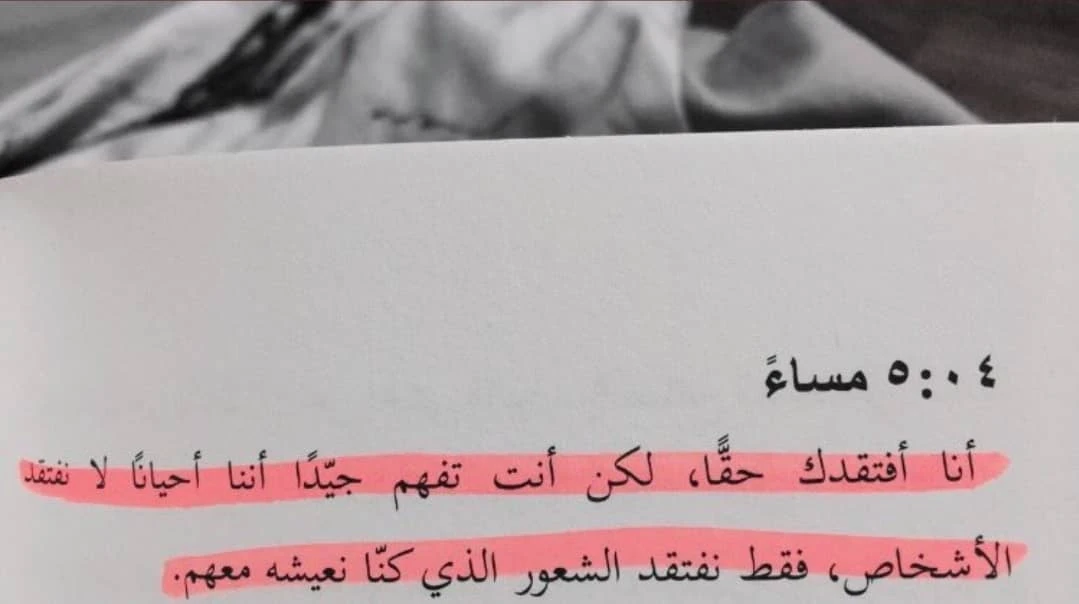 ٥:٠٤ مساءً
أنا أفتقدك حقًّا، لكن أنت تفهم جيّدًا أننا أحيانًا لا نفتقد
الأشخاص، فقط نفتقد الشعور الذي كنّا نعيشه معهم.